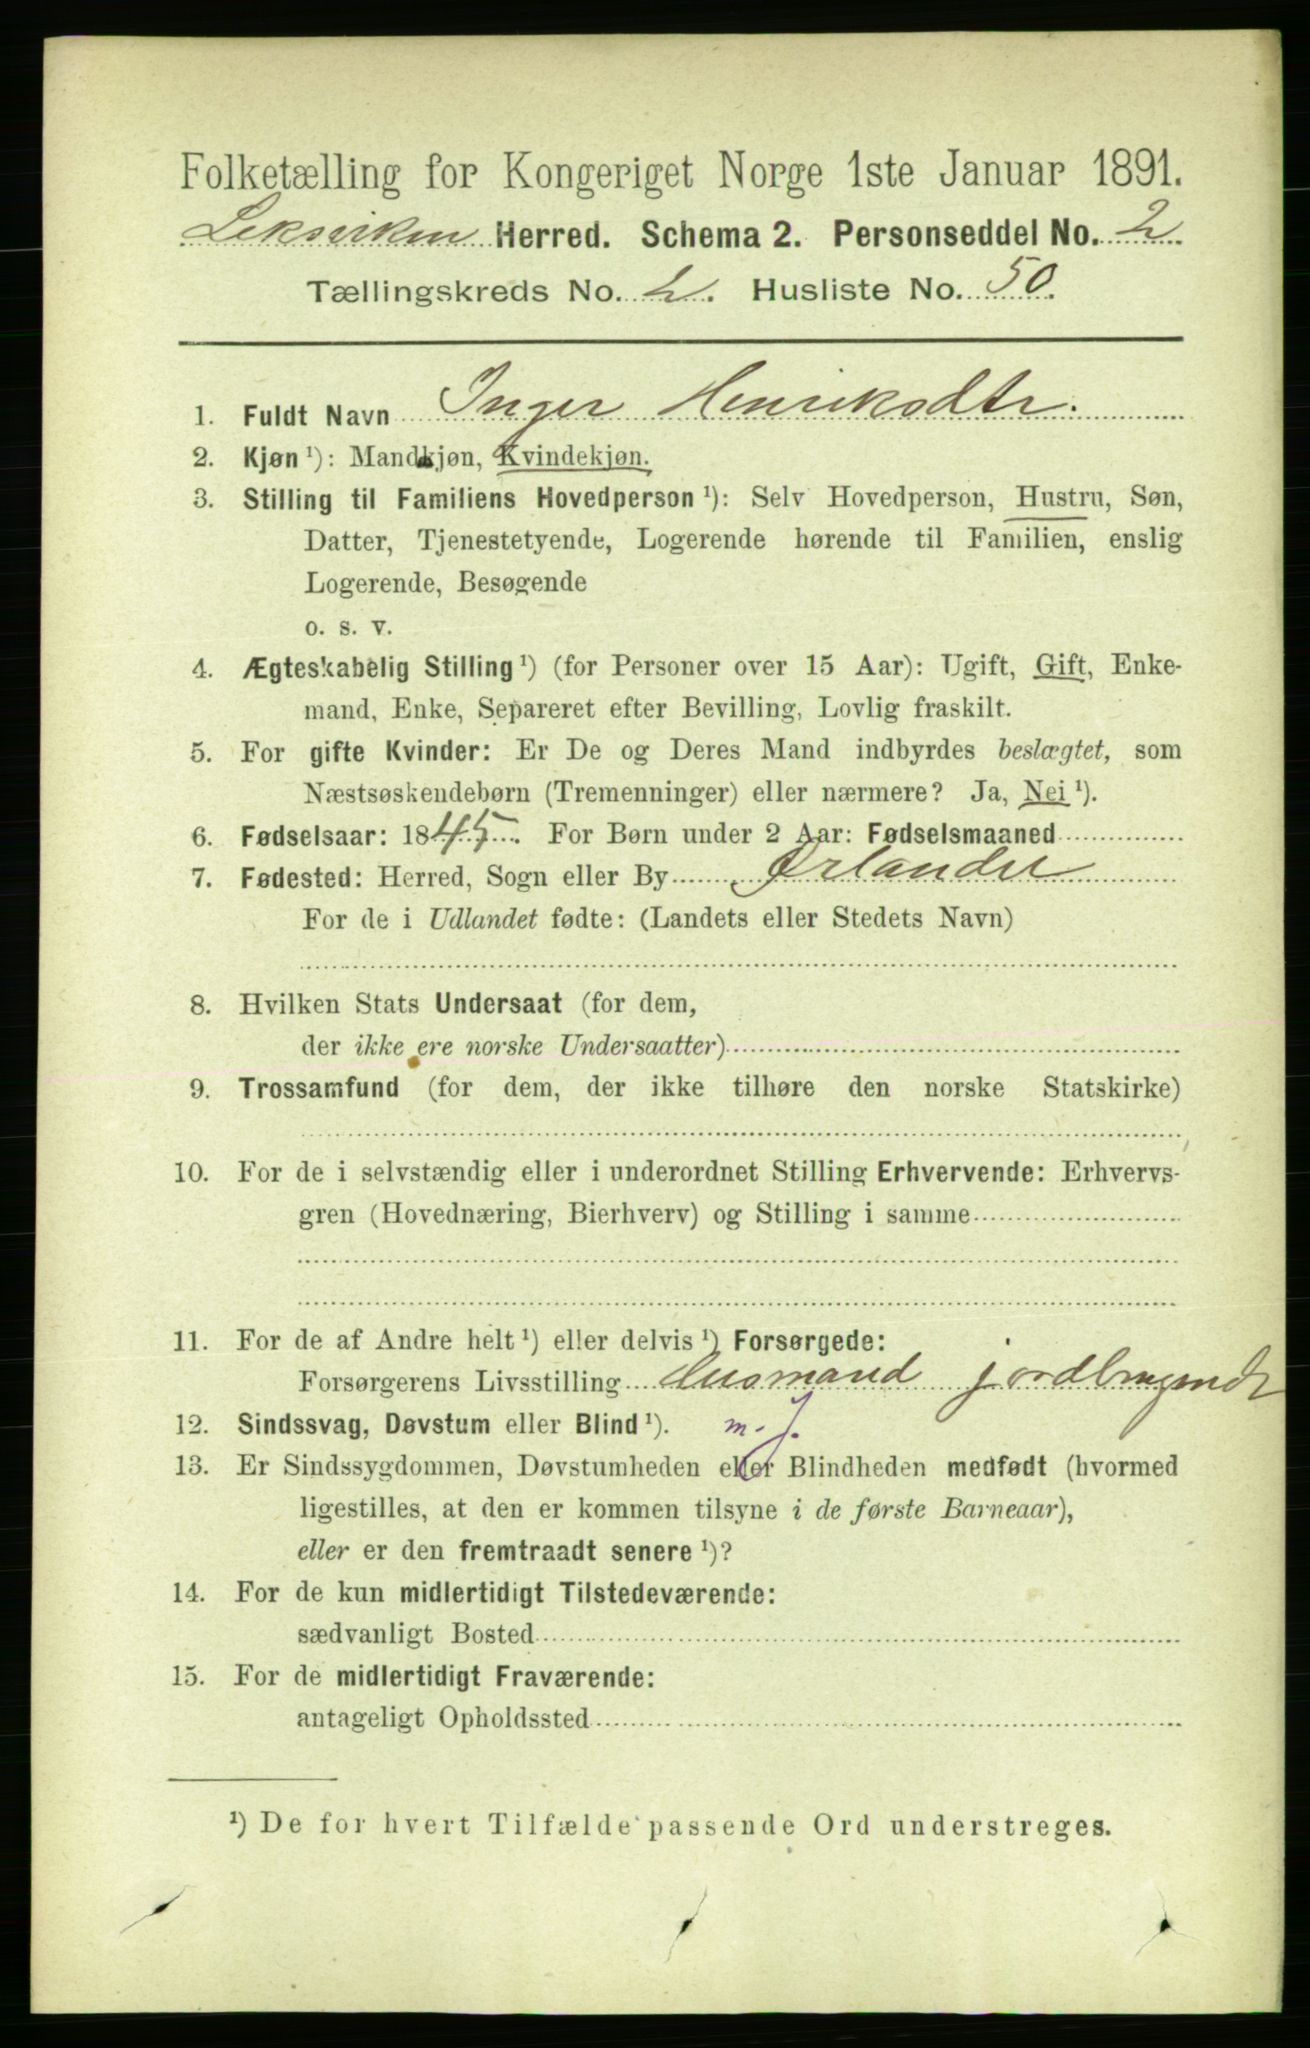 Folketælling for Kongeriget Norge 1ste Januar 1891.
Leksviken Herred. Schema 2. Personseddel No. 2
Tællingskreds No. 2. Husliste No. 50.
1. Fuldt Navn Inger Henriksdtr.
2. Kjøn ¹): Mandkjøn, Kvindekjøn.
3. Stilling til Familiens Hovedperson ¹): Selv Hovedperson, Hustru, Søn,
Datter, Tjenestetyende, Logerende hørende til Familien, enslig
Logerende, Besøgende
o. s. v.
4. Ægteskabelig Stilling ¹) (for Personer over 15 Aar): Ugift, Gift, Enke-
mand, Enke, Separeret efter Bevilling, Lovlig fraskilt.
5. For gifte Kvinder: Er De og Deres Mand indbyrdes beslægtet, som
Næstsøskendebørn (Tremenninger) eller nærmere? Ja, Nei ¹).
6. Fødselsaar: 1845. For Børn under 2 Aar: Fødselsmaaned
7. Fødested: Herred, Sogn eller By Ørlandet
For de i Udlandet fødte: (Landets eller Stedets Navn)
8. Hvilken Stats Undersaat (for dem,
der ikke ere norske Undersaatter)
9. Trossamfund (for dem, der ikke tilhøre den norske Statskirke)
10. For de i selvstændig eller i underordnet Stilling Erhvervende: Erhvervs-
gren (Hovednæring, Bierhverv) og Stilling i samme
11. For de af Andre helt ¹) eller delvis ¹) Forsørgede:
Forsørgerens Livsstilling Husmand jordbrugende
12. Sindssvag, Døvstum eller Blind ¹). m. J.
13. Er Sindssygdommen, Døvstumheden eller Blindheden medfødt (hvormed
ligestilles, at den er kommen tilsyne i de første Barneaar),
eller er den fremtraadt senere ¹)?
14. For de kun midlertidigt Tilstedeværende:
sædvanligt Bosted
15. For de midlertidigt Fraværende:
antageligt Opholdssted
¹) De for hvert Tilfælde passende Ord understreges.